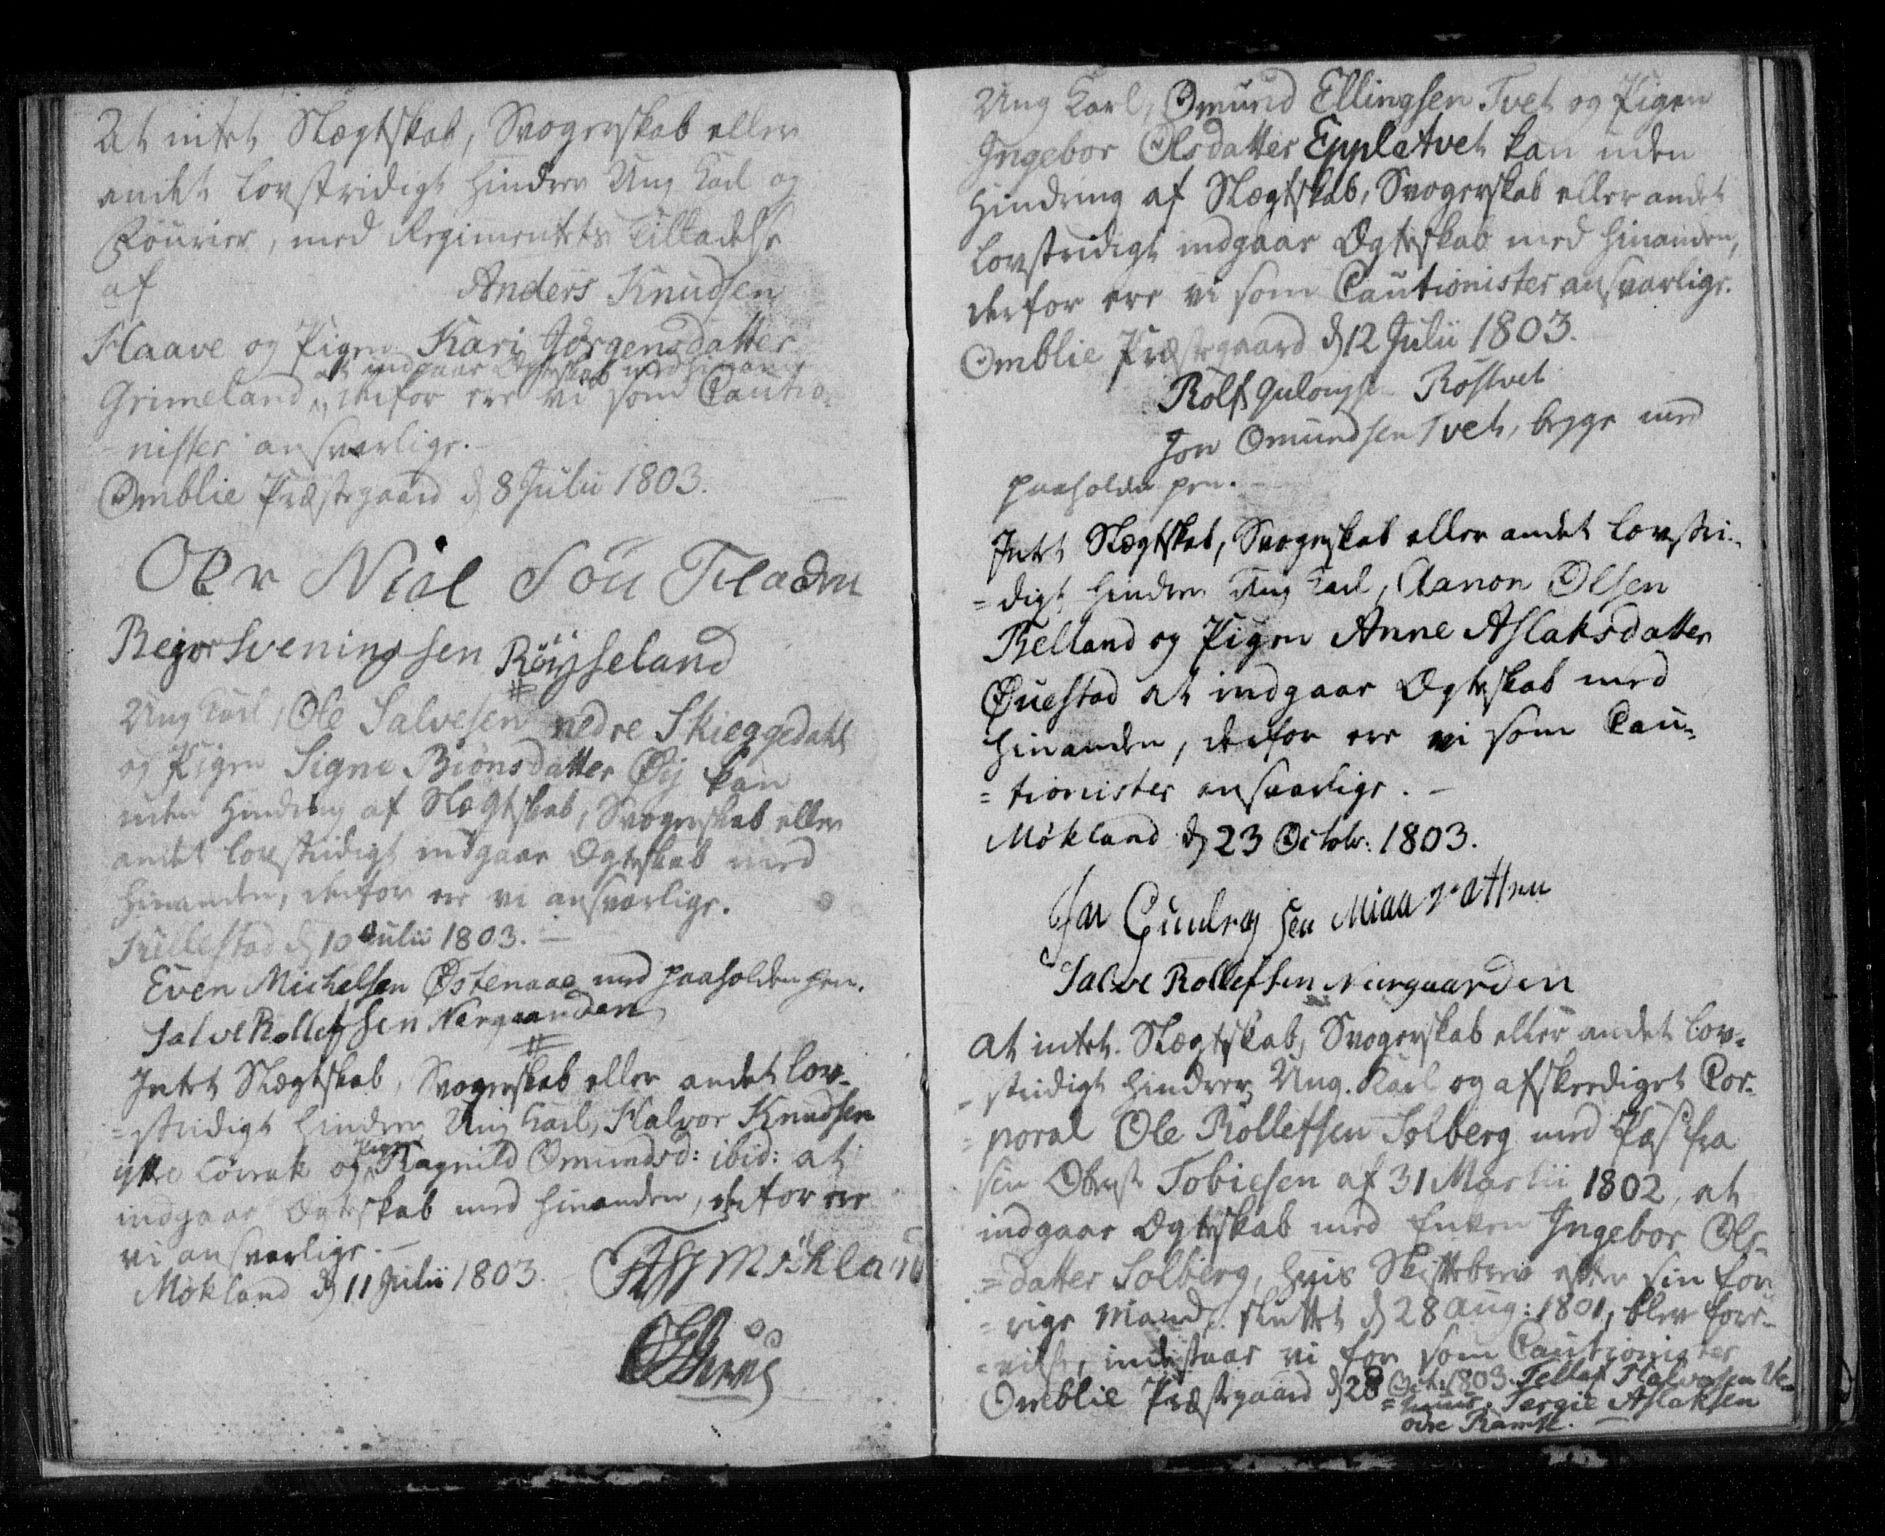 At intet Slægtskab, Svogerskab eller
andet lovstridigt hindrer Ung Karl og
Fourier, med Regimentets Tilladelse
af Anders Knudsen
Haave og Pigen Kari Jörgensdatter
at indgaae Ægteskab med hinanden
Grimeland, derfor ere vi som Cautio-
nister ansvarlige.
Omblie Præstegaard d 8 Julii 1803.
Oler Niel Sön Tladen
Rejor Sveningsen Röysseland
Ung Karl, Ole Salvesen nedre Skieggedahl
og Pigen Signe Biönsdatter Øy kan
uden Hindring af Slægtskab, Svogerskab eller
andet lovstridigt indgaae Ægteskab med
hinanden, derfor ere vi ansvarlige.
d 10 Julii 1803.
Even Michelsen Østenaae med paaholden Pen.
Salve Rollefsen Nergaarden
Intet Slægtskab, Svogerskab eller andet lov-
=stridigt hindrer Ung Karl, Halvor Knudsen
Pigen
ytre Lövrak og Ragnild Omundsd: ibid: at
indgaae Ægteskab med hinanden, derfor ere
vi ansvarlige.
Mökland d 11 Julii 1803. Mökland
Ung Karl, Omund Ellingsen Tvet og Pigen
Ingebor Olsdatter Eppletvet kan uden
Hindring af Slægtskab, Svogerskab eller andet
lovstridigt indgaae Ægteskab med hinanden,
derfor ere vi som Cautionister ansvarlige.
Omblie Præstegaard d 12 Julii 1803.
Rolf Rostvet
Jon Omundsen Tvet, begge med
paaholden pen.
Intet Slægtskab, Svogerskab eller andet lovstri-
=digt hindrer Ung Karl, Aanon Olsen
Belland og Pigen Anne Aslaksdatter
Øuestad at indgaae Ægteskab med
hinanden, derfor ere vi som Cau-
=tionister ansvarlige.
Mökland d 23 Octobr: 1803.
Salve Rollefsen Nergaarden
At intet Slægtskab, Svogerskab eller andet lov-
=stridigt hindrer Ung Karl og afskediget Cor-
=poral Ole Rollefsen Solberg med Pas fra
sin Oberst Tobiesen af 31 Martii 1802, at
indgaae Ægteskab med Enken Ingebor Ols-
=datter Solberg, hvis Skiftebrev efter sin for-
=rige Mand, sluttet d 28 Aug: 1801, blev fore-
=viist, indestaar vi for som Cautionister
Omblie Præstegaard d 28 Oct: 1803. Tellef Halvorsen Ve-
Tergie Aslaksen
övre Ramse.